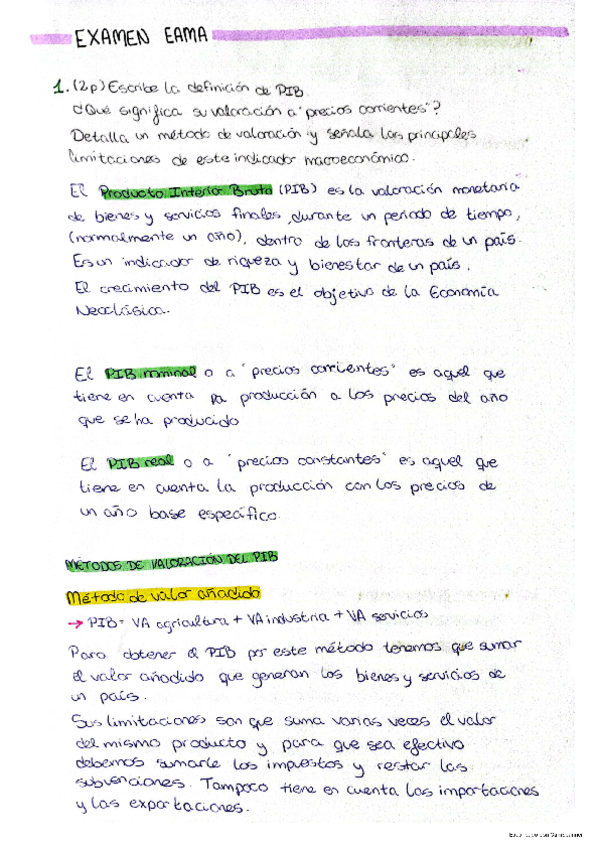 EXAMEN EAMA
1. (2p) Escribe la definición de PIB.
¿Qué significa su valoración a "precios corrientes"?
Detalla un método de valoración y señala las principales
limitaciones de este indicador macroeconómico.
El Producto Interior Bruto (PIB) es la valoración monetaria
de bienes y servicios finales, durante un periodo de tiempo,
(normalmente un año), dentro de las fronteras de un país.
Es un indicador de riqueza y bienestar de un país.
El crecimiento del PIB es el objetivo de la Economía
Neoclásica.
El PIB nominal o a "precios corrientes" es aquel que
tiene en cuenta la producción a los precios del año
que se ha producido
El PIB real o a "precios constantes" es aquel que
tiene en cuenta la producción con los precios de
un año base específico.
MÉTODOS DE VALORACIÓN DEL PIB
Método de valor añadido
→ PIB = VA agricultura + VA industria + VA servicios
Para obtener el PIB por este método tenemos que sumar
el valor añadido que generan los bienes y servicios de
un país.
Sus limitaciones son que suma varias veces el valor
del mismo producto y para que sea efectivo
debemos sumarle los impuestos y restar las
subvenciones. Tampoco tiene en cuenta las importaciones
y las exportaciones.